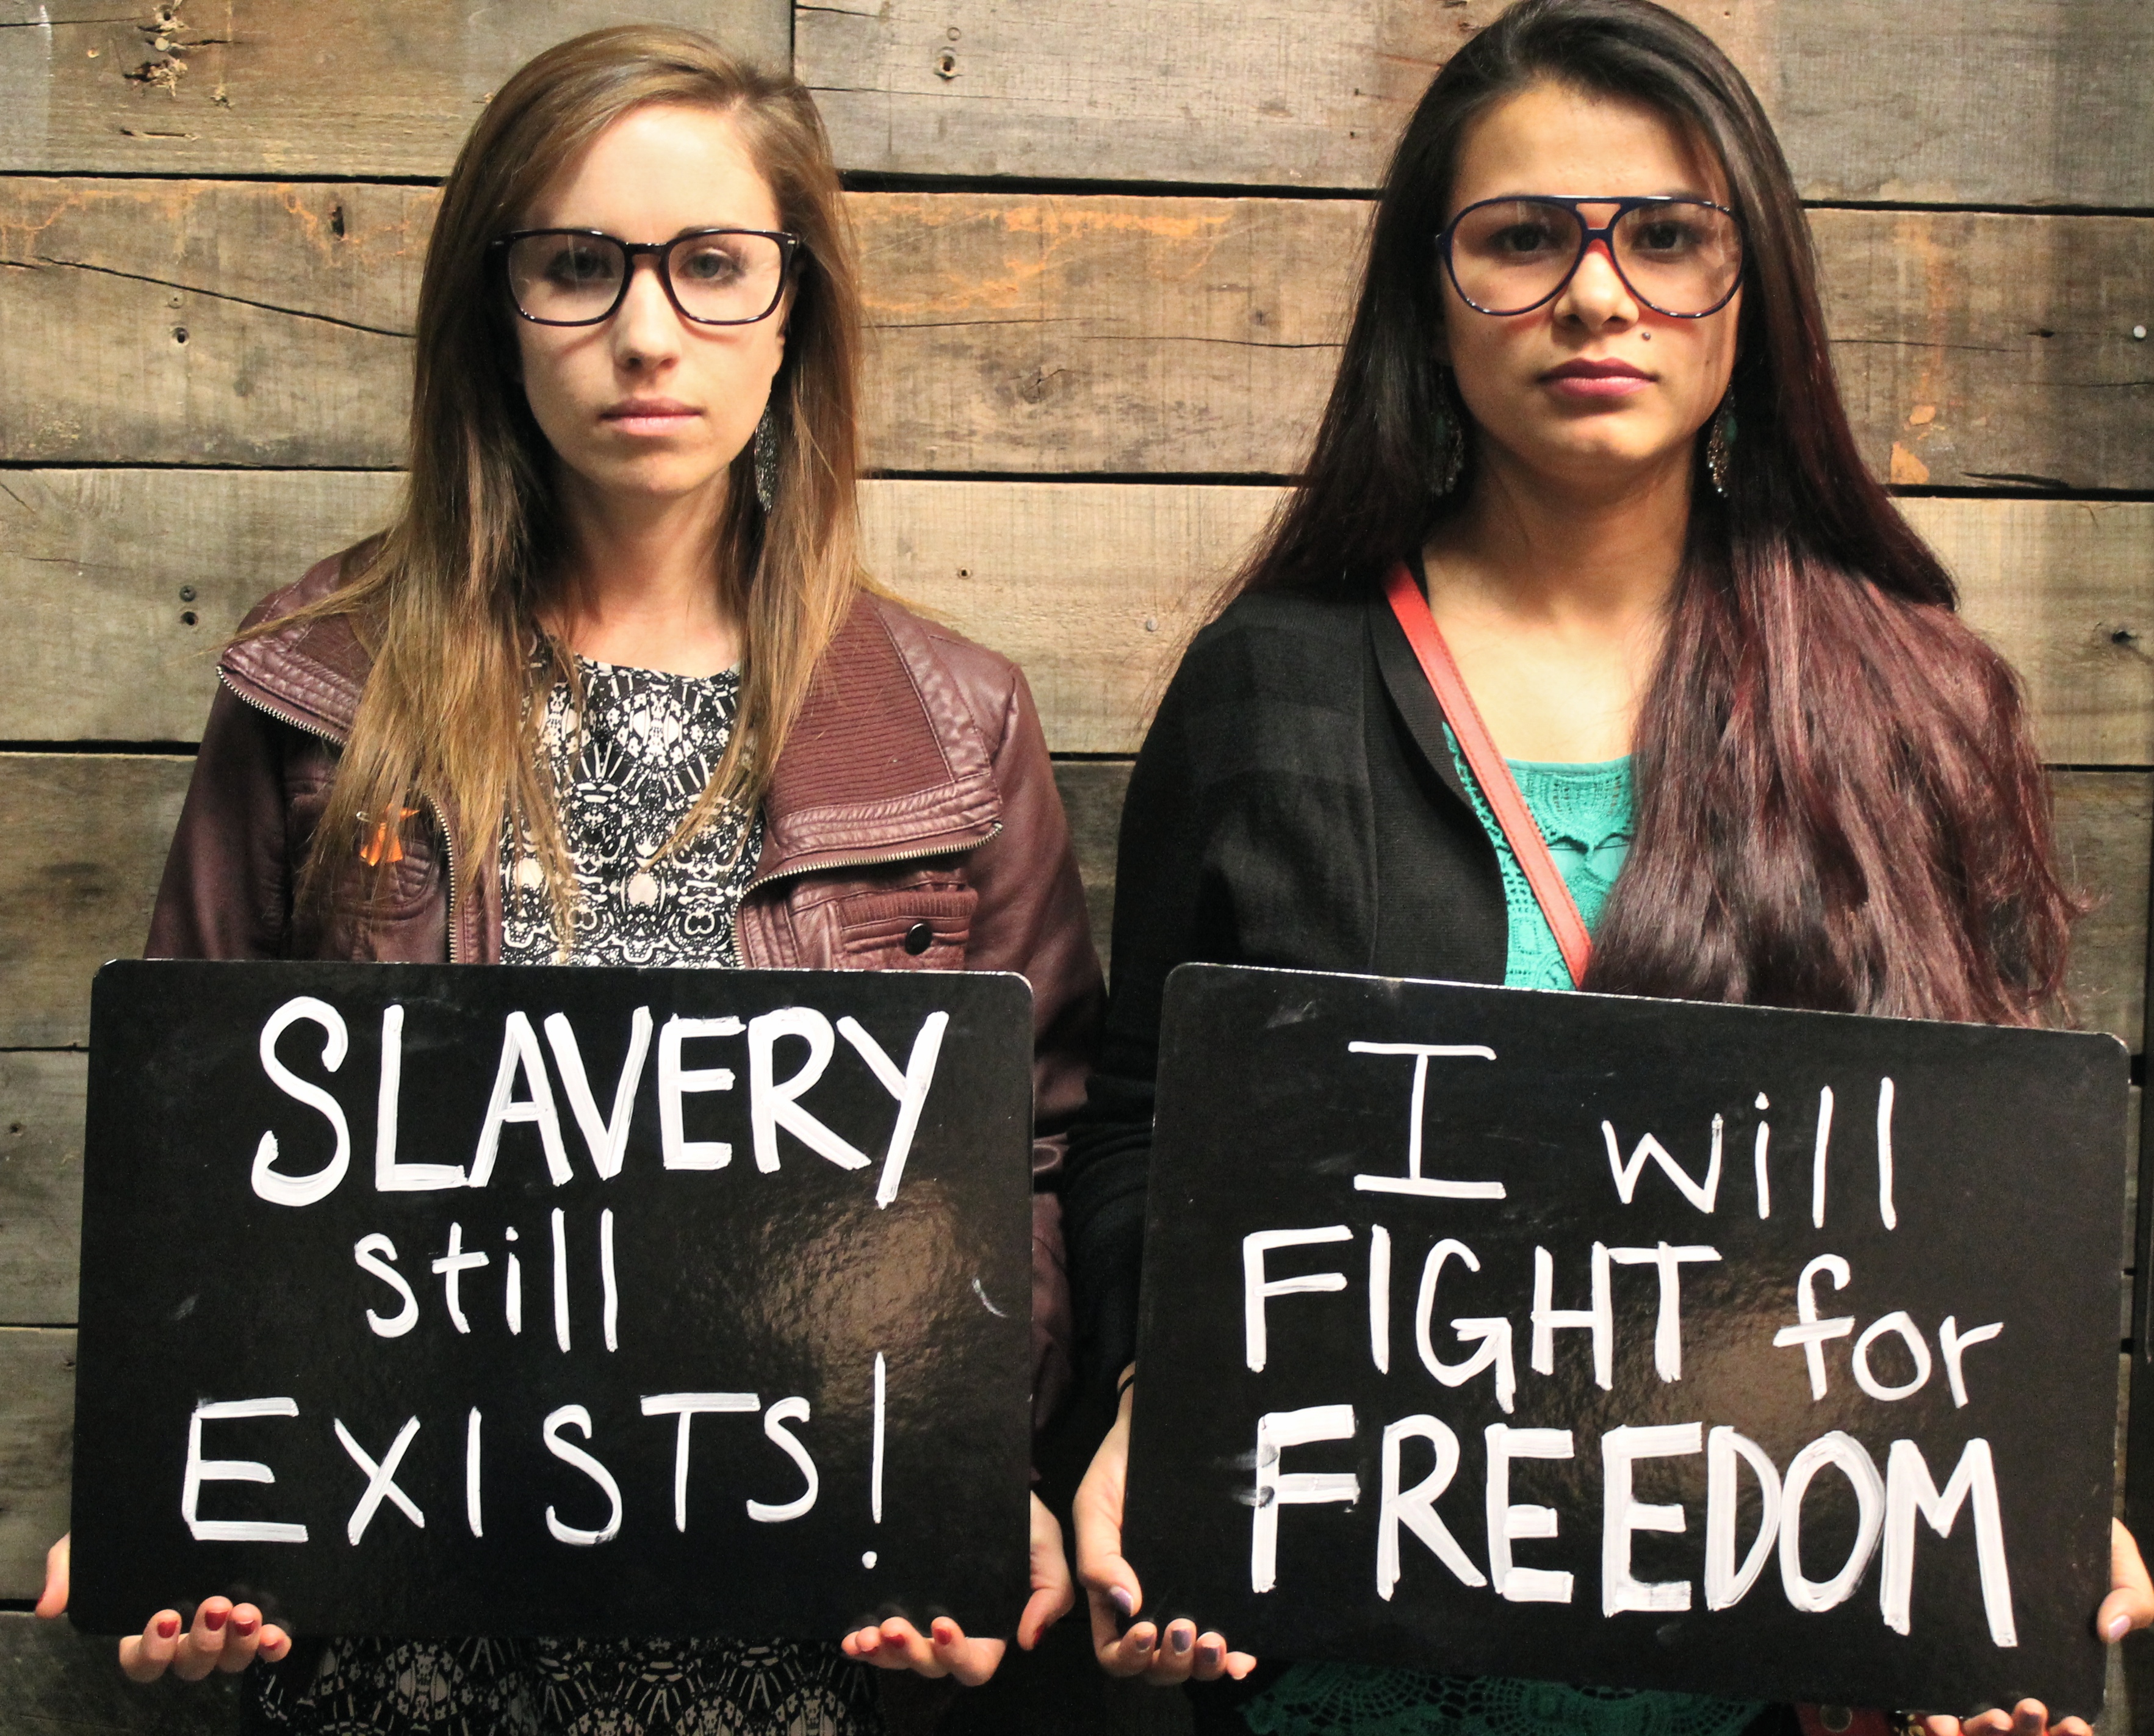 SLAVERY
still
EXISTS!
I will
FIGHT for
FREEDOM